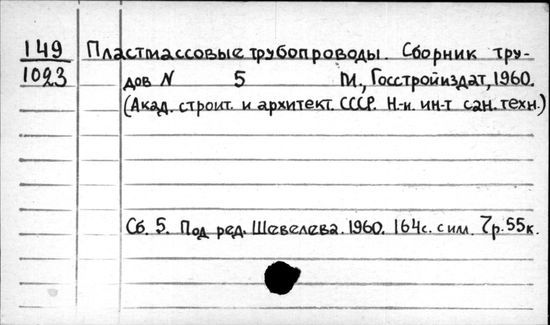 149 Пластмассовые трубопроводы Сборник тру-
1023 дов N 5 М., Госстройиздат, 1960.
(Акад. строит. и архитект. СССР. Н-и. ин-т сан. техн.)
Сб. 5. Под ред. Шевелева. 1960. 164с. с илл. 7р. 55к.